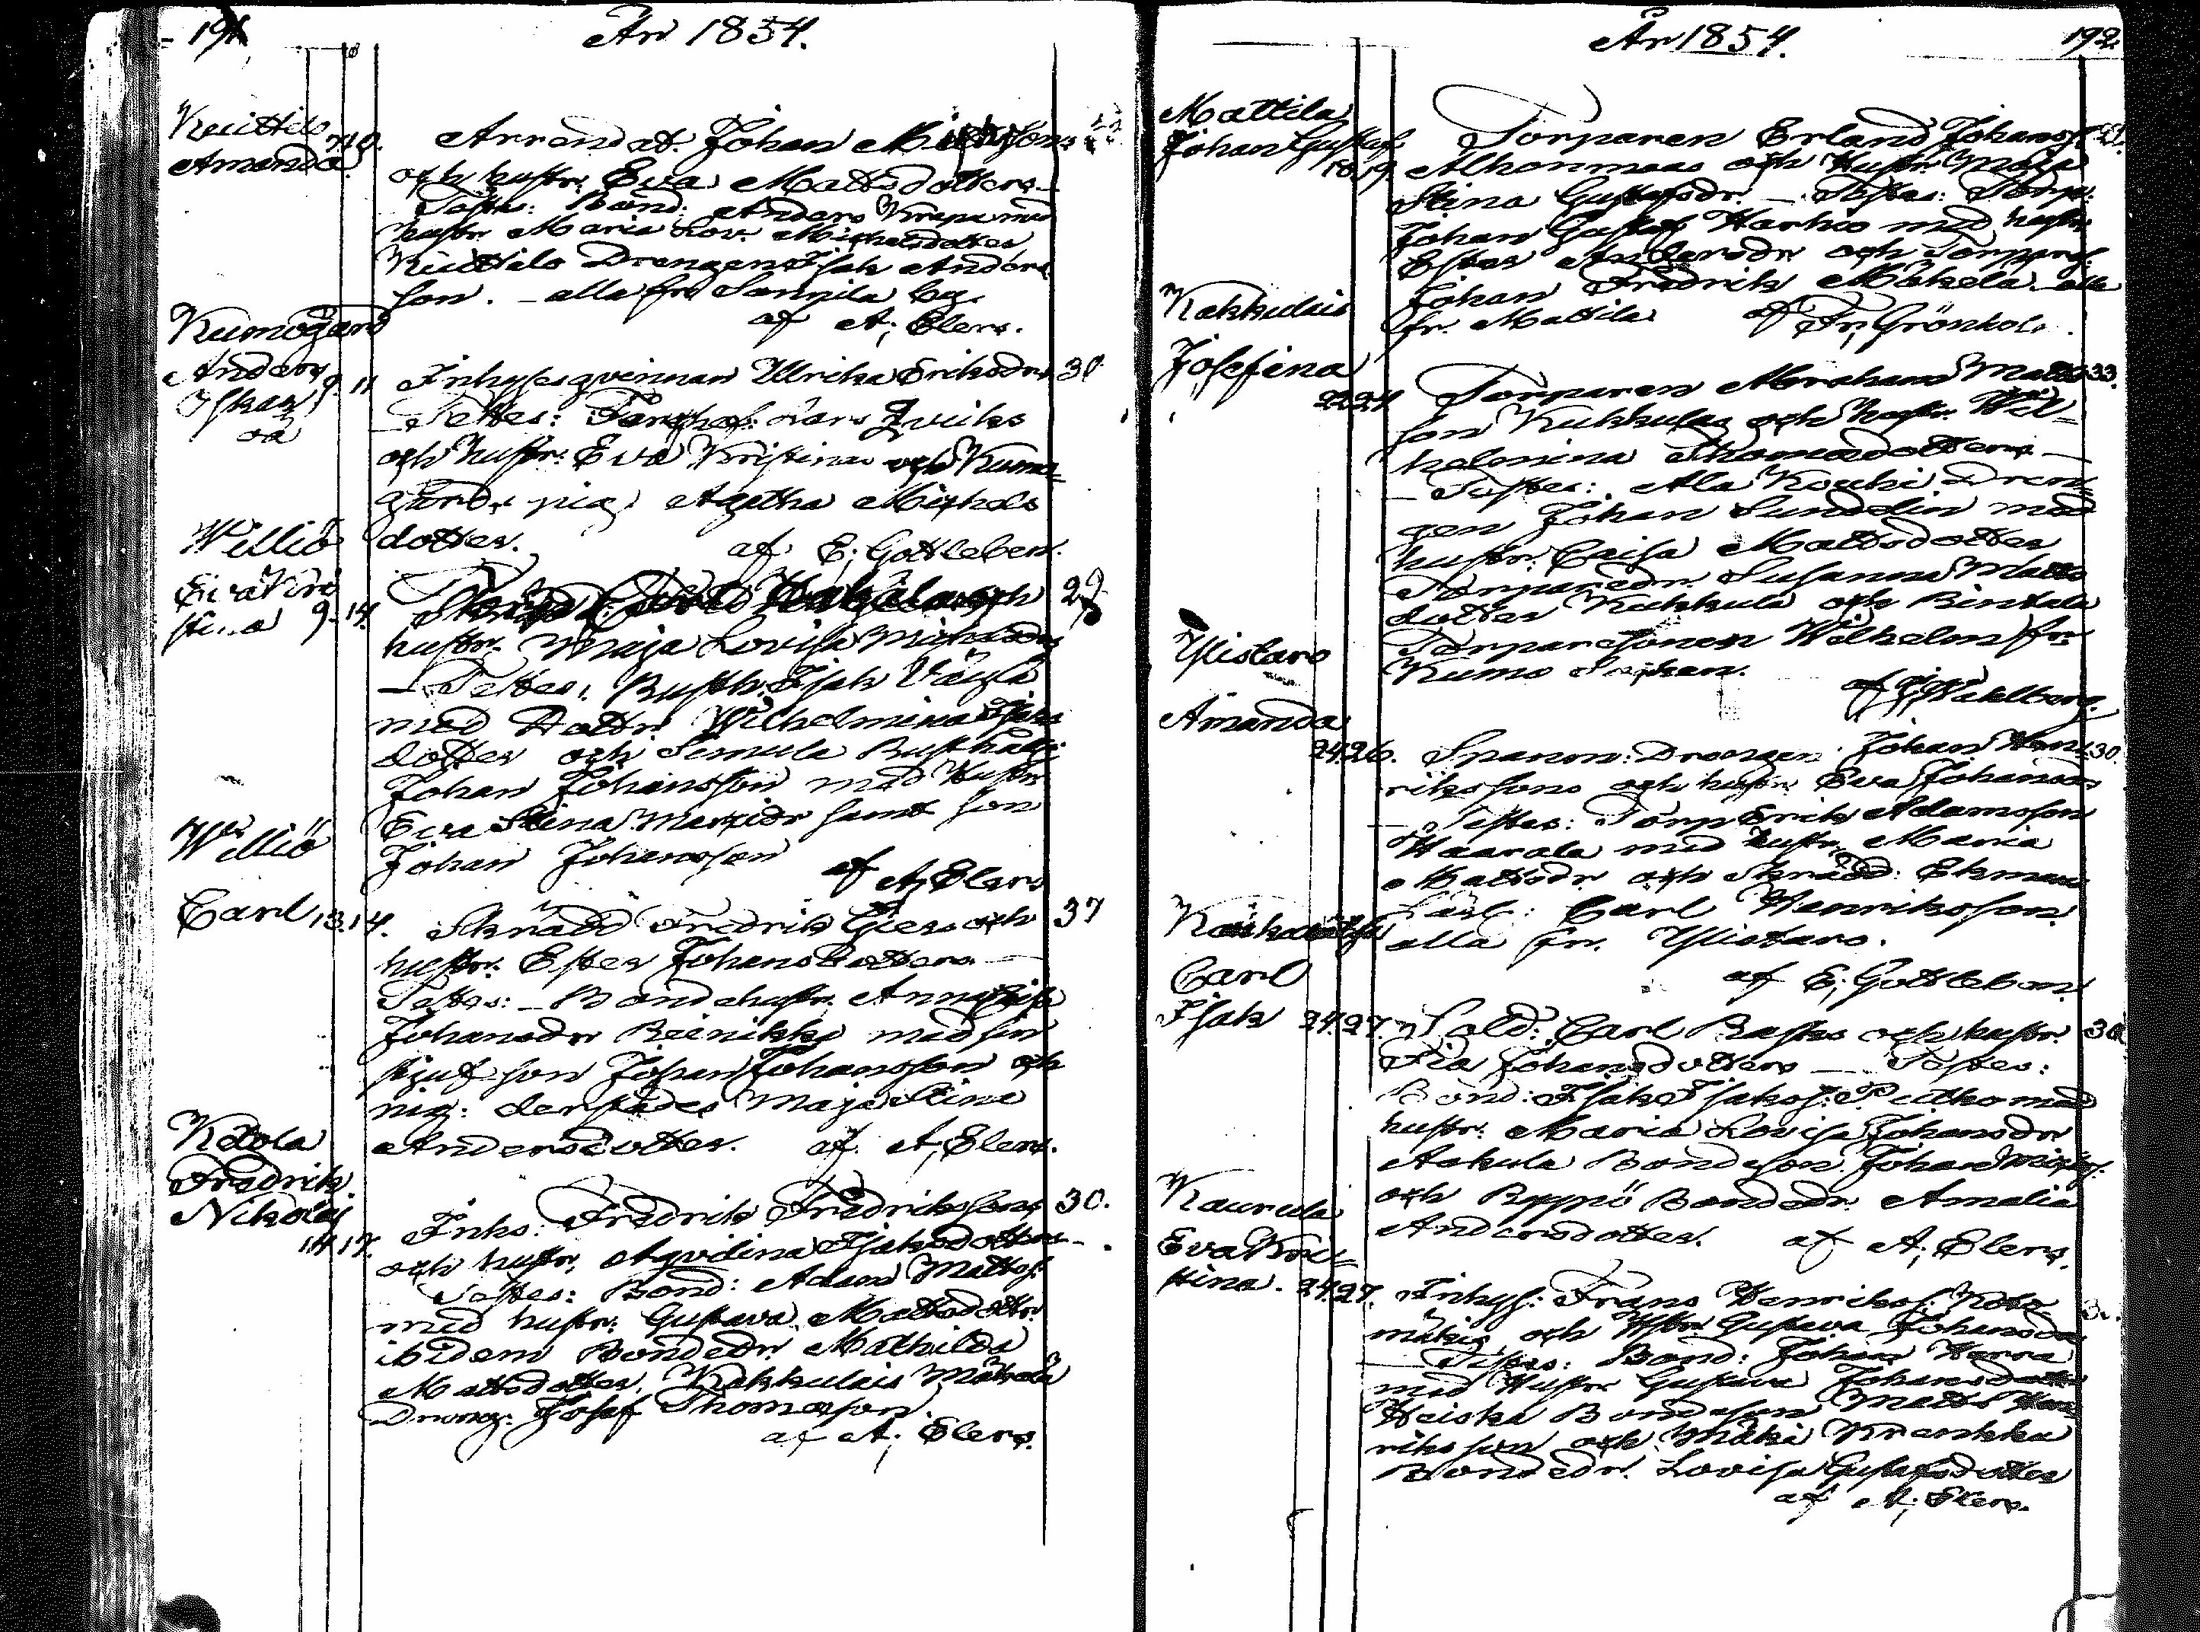 191
År 1854.
Kuittilo
Amanda
7.10.
Arrendat. Johan
och hustr. Eva Mattsdotters
Testes: Bond: Anders Krapa med
hustr. Maria Lov. Michelsdotter
Kuittilo Drengen Isak Anders
son. – alla fr. Sonnila by.
af A; Elers.
Kumogård
Anders
Oskar
oä
9.11
Inhysesqvinnan Ulrika Eriksdr. 30
Testes: Lars Qviks
och hustr. Eva Kristina och Kumo
gårds pig. Agatha Michels
dotter.
af E; Gottleben.
Williö
Eva Kri
stina 9.14.
och 27
hustr. Maja Lovisa Michelsdr
– Testes: Rusth. Isak
med Dottr. Wilhelmina Isaks
dotter och Simula Rusthåll:
Johan Johansson med Hustr
Eva Stina samt son
Johan Johansson
af A; Elers
Williö
Carl 13.14.
Skrädd Fredrik och 37
hustr. Ester Johansdotters
Testes: – Bondehustr. Anna Lisa
Johansdr med sin
son Johan Johansson och
pig: derstädes Maja Stina
Andersdotter. af A; Elers.
Kotola
Fredrik
Nikolai
14.17.
Inhs: Fredrik Fredrikssons 30.
och hustr. Aqvilina Isaksdotters
Testes: Bond: Adam Mattss.
med hustr: Gustava Mattsdottr.
ibidem Bondedr. Mathilda
Mattsdotter, Kokkulais Mäkelä
Dreng: Josef Thomasson.
af A; Elers.
192.
År 1854.
Mattila
Johan Gustaf
18.19.
Torparen Erland Johanss.
och Hustr. Maja
Stina Gustafsdr. – Testes: Torp:
Johan Gustaf Harhio med hustr
Ester Andersdr och
Johan Fredrik Mäkelä. alla
fr. Mattila af Fr; Grönholm.
Kukkulais
Josefina
22.24
Torparen Abraham Matts 33.
son Kukkulas och hustr. Wil-
helmina Thomasdotters
– Testes: Ala Kouki Dren-
gen Johan Sundelin med
hustr: Caisa Mattsdotter
Torparedr. Susanna Matts
dotter Kukkula och Rintala
Torparesonen Wilhelm fr.
Kumo Socken.
af Wahlberg.
Ylistaro
Amanda
24.26.
Johan Hen 30.
rikssons och hustr. Eva Johansdr
– Testes: Torp Erik Adamsson
Haarala med hustr. Maria
Mattsdr och Skrädd: Ekman
Carl Henriksson
alla fr. Ylistaro.
af E; Gottleben.
Carl
Isak 24.27.
Sold: Carl Rasks och hustr. 30
Fia Johansdotters – Testes:
Bond: Isak Isakss: med
hustr: Maria Lovisa Johansdr
Askula Bondeson Johan
och Pyppö Bondedr. Amalia
Andersdotter. af A; Elers.
Kaurula
Eva Kri-
stina. 24.27.
Inhys: Frans Henrikss: Koto
mäkis och Hstr Gustava Johansdr
– Testes: Bond: Johan Harra
med Hustr Gustava Johansdotter
Heiska Bondeson Matts Hen
riksson och Mäki Krankka
Bondedr. Lovisa Gustafsdotter
af A; Elers.